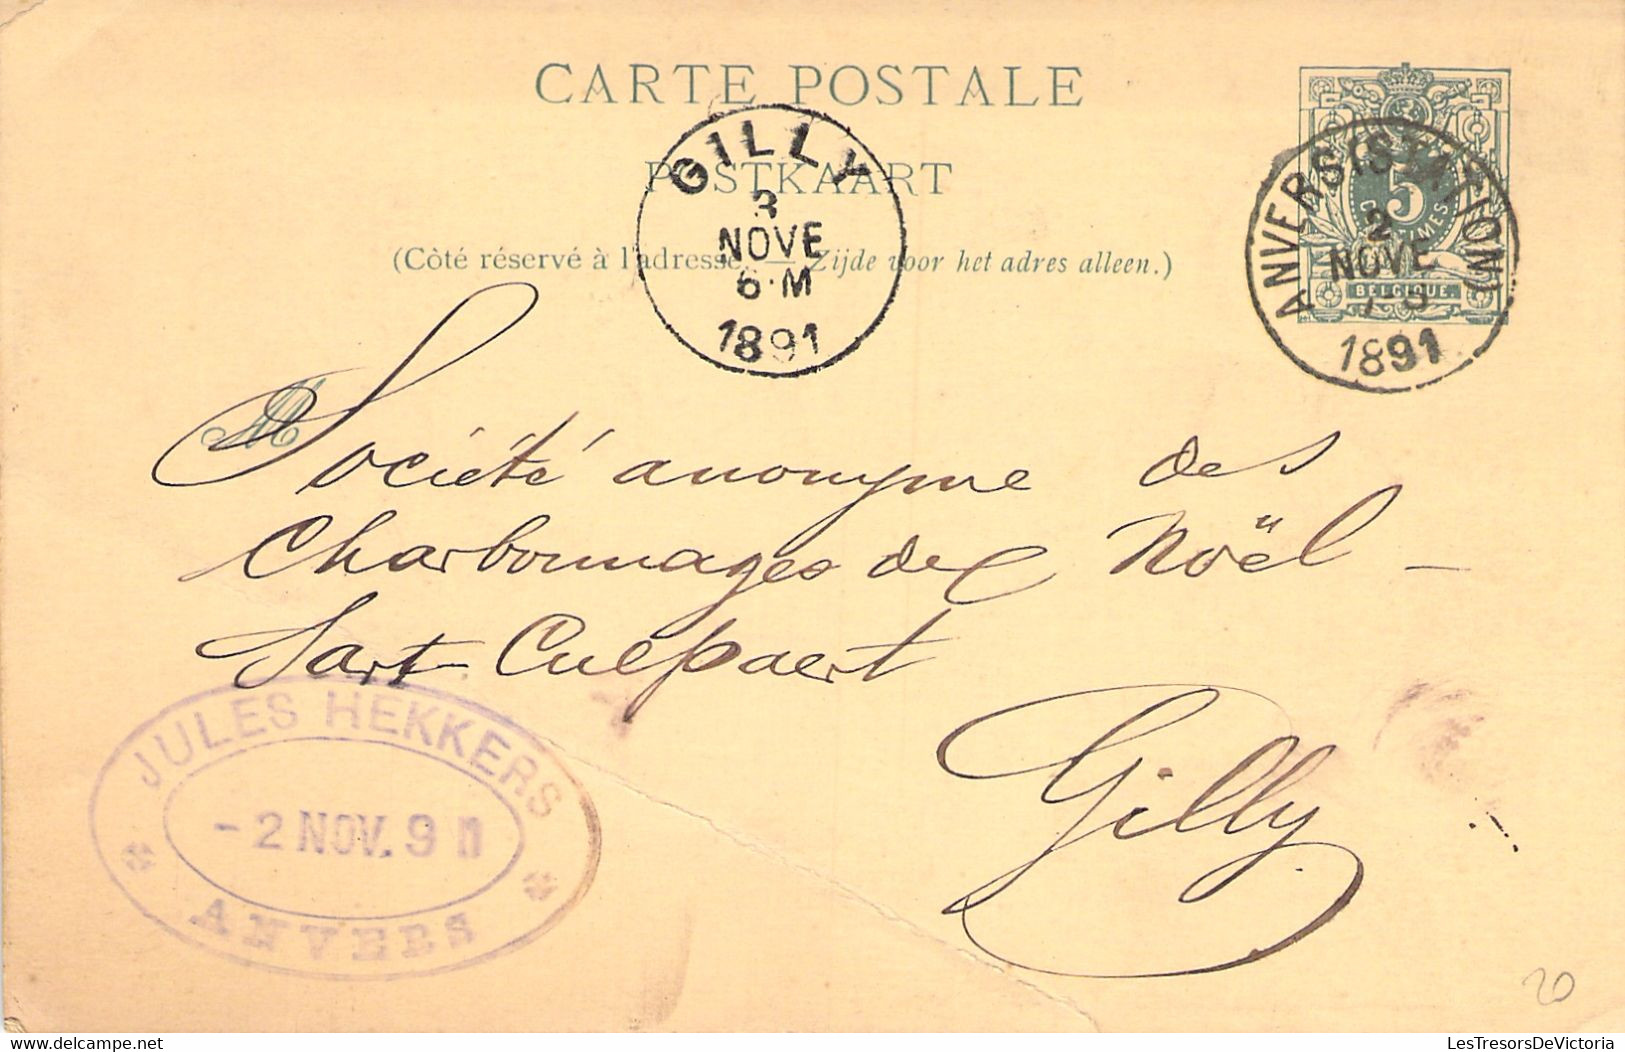 CARTE POSTALE
POSTKAART
(Côté réservé à l'adresse. — Zijde voor het adres alleen.)
GILLY
3
NOVE
6·M
1891
5
CENTIMES
BELGIQUE
ANVERS (STATION)
2
NOVE
1891
M
Société anonyme des
Charbonnages de Noël-
Sart Culpaert
Gilly
JULES HEKKERS
- 2 NOV. 9
ANVERS
20
www.delcampe.net
LesTresorsDeVictoria